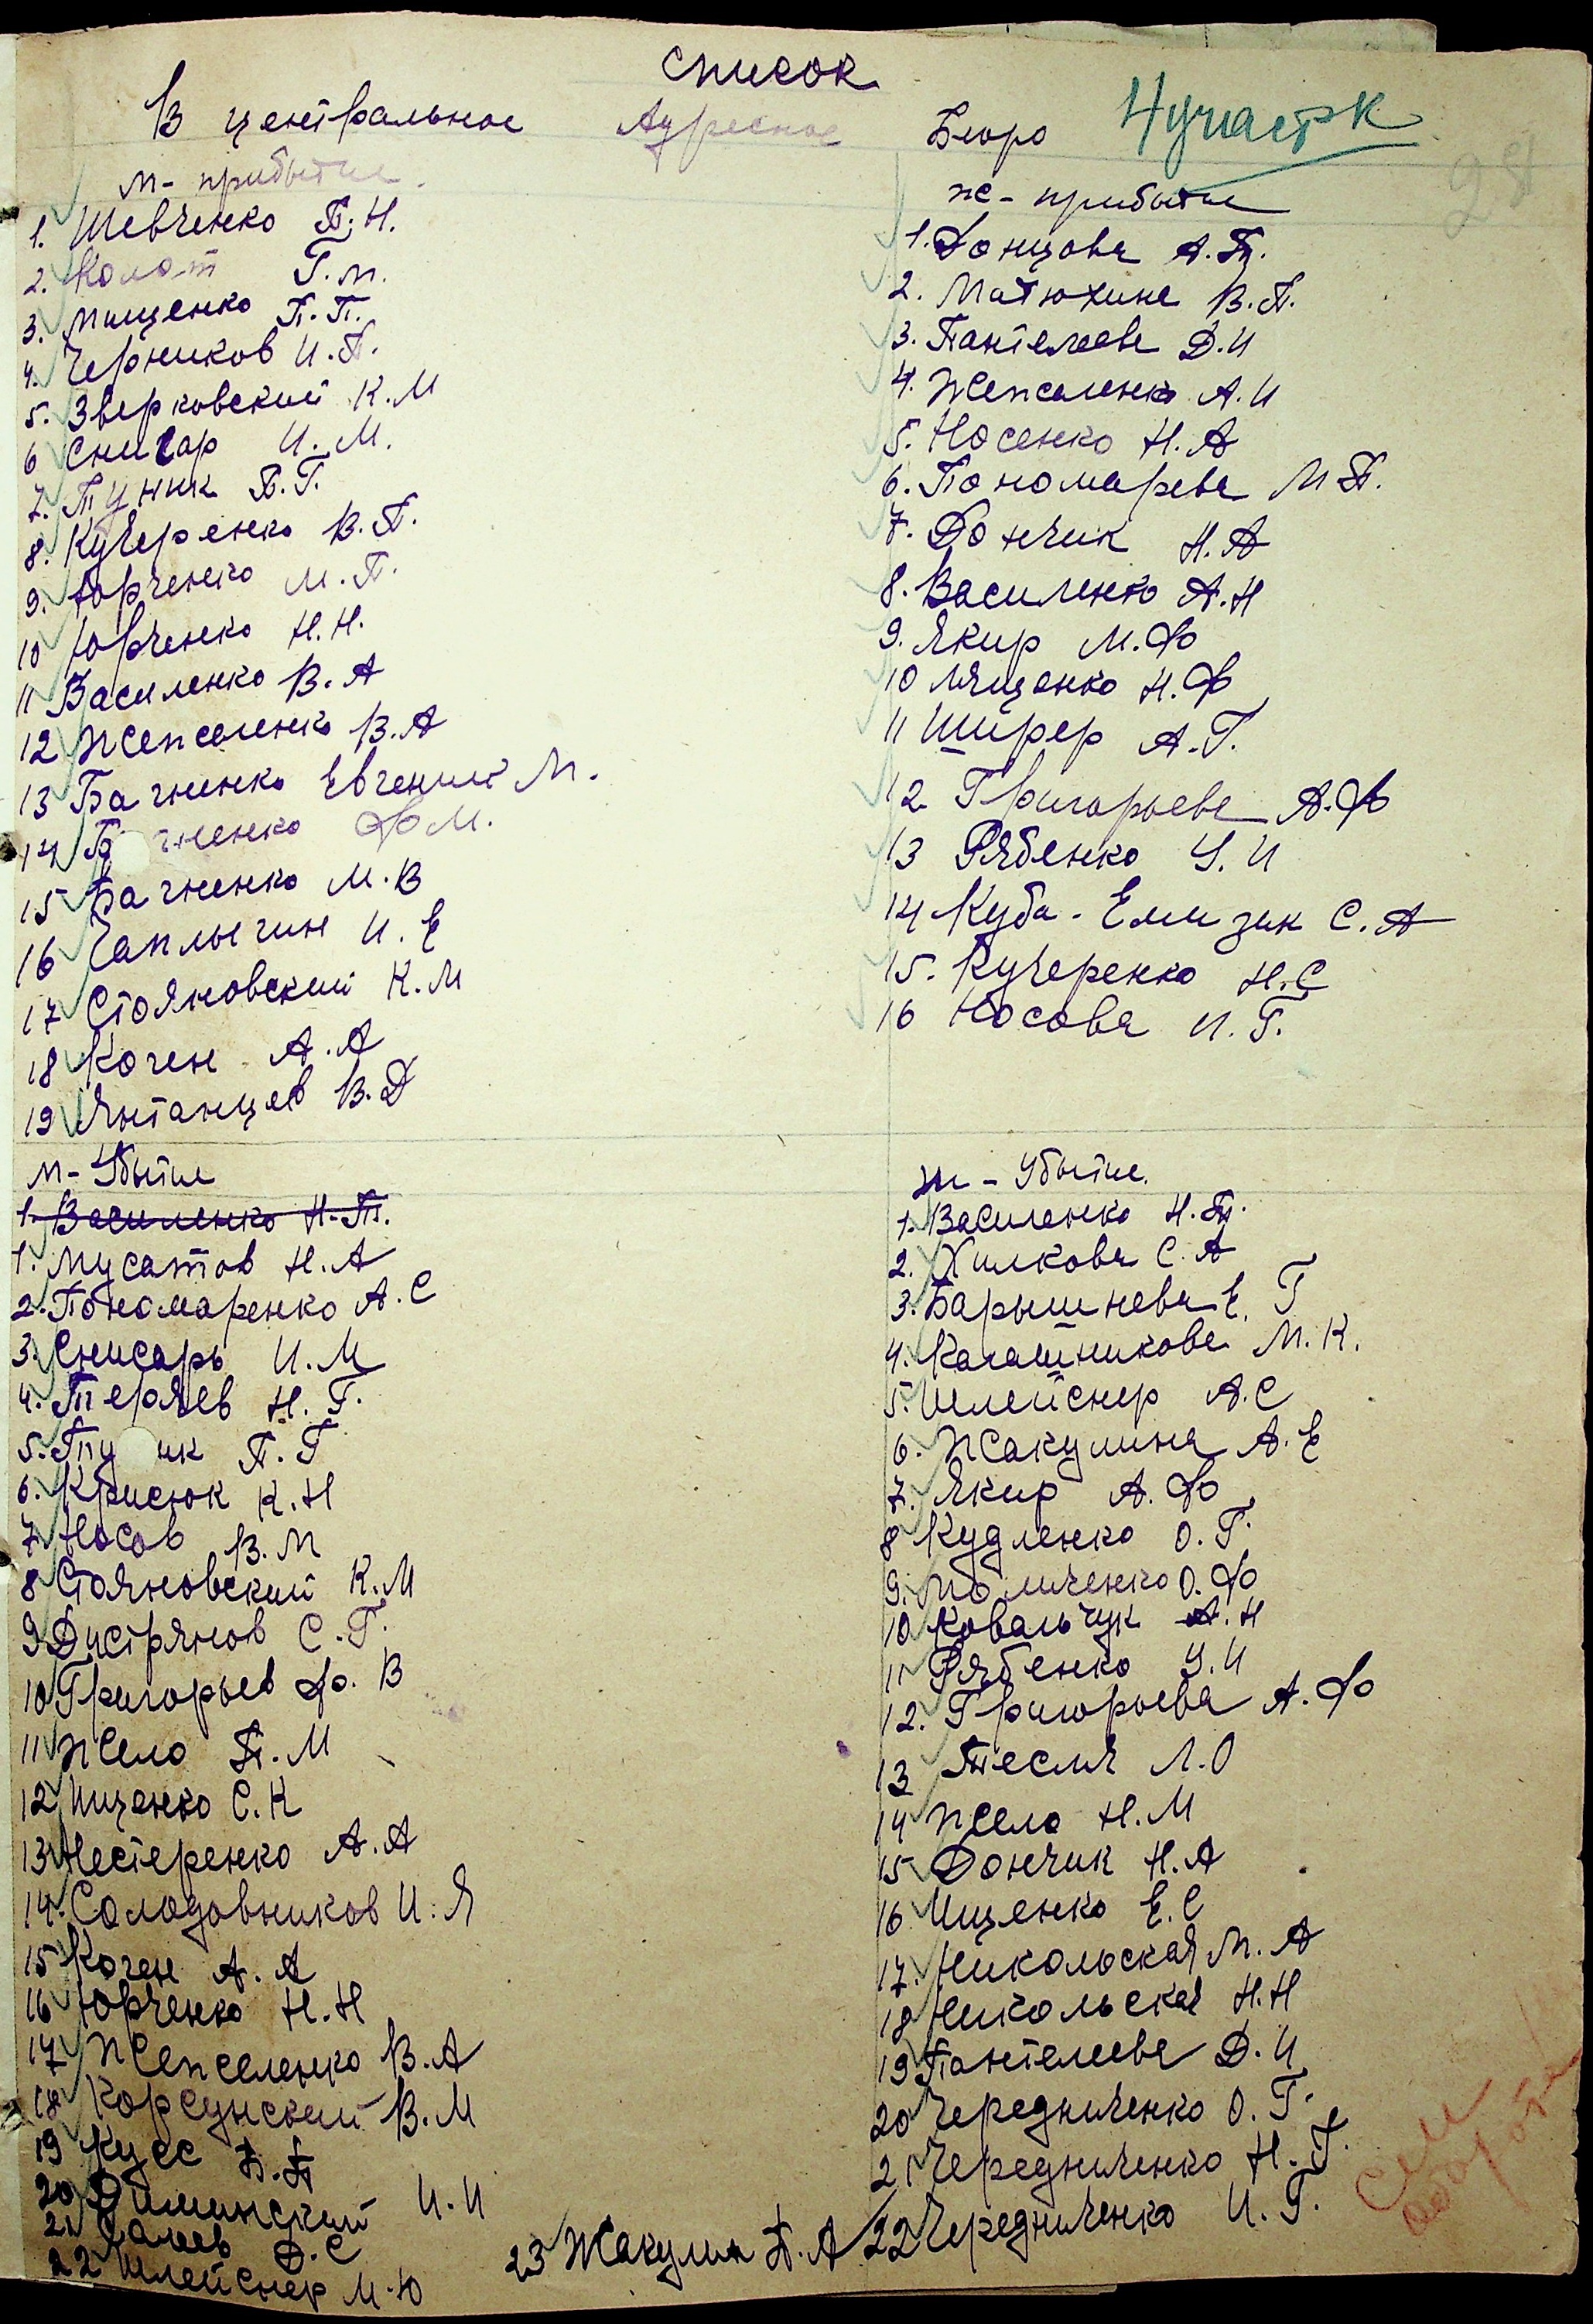 список
В центральное Адресное Бюро 4 участок
28
м - прибытие
1. Шевченко П.Н.
2. Колот Г.М.
3. Мищенко П.П.
4. Черников И.П.
5. Зверковский К.М
6 Снисар И.М.
7. Пуник П.Г.
8. Кучеренко В.П.
9. Юрченко М.П.
10 Юрченко Н.Н.
11 Василенко В.А
12 Жепселенко В.А
13 Багненко Евгений М.
14 Б гненко Ф М.
15 Багненко М.В
16 Чаплыгин И.Е
17 Стояновский К.М
18 Коген А.А
19 Янтанцев В.Д
ж - прибытие
1. Донцова А.П.
2. Матюхина В.П.
3. Пантелеева Д.И
4. Жепселенко А.И
5. Носенко Н.А
6. Пономарева М.П.
7. Дончик Н.А
8. Василенко А.Н
9. Якир М.Ф
10 Мищенко Н.Ф
11 Ширер А.Г.
12 Григорьева А.Ф
13 Рябенко У.И
14 Куба-Емизик С.А
15. Кучеренко Н.С
16 Носова И.Г.
м - Убытие
1. Василенко Н.П.
1. Мусатов Н.А
2. Пономаренко А.С
3. Снисарь И.М
4. Теряев Н.Г.
5. Пу ик П.Г
6. Крисюк К.Н
7 Носов В.М
8 Стояновский К.М
9 Дистрянов С.Г.
10 Григорьев Ф.В
11 Жело П.М
12 Ищенко С.К
13 Нестеренко А.А
14. Солодовников И.Я
15 Коген А.А
16 Юрченко Н.Н
17 Жепселенко В.А
18 Корсунский В.М
19 Кусс П.П
20 Диминский И.И
21 Галеев Д.С
22 Шлейснер М.Ю
23 Жакулин П.А
ж - Убытие.
1. Василенко Н.П.
2. Хилкова С.А
3. Барышнева Е.Г
4. Калашникова М.К.
5. Шлейснер А.С
6. Жакулина А.Е
7. Якир А.Ф
8 Кудленко О.Г.
9. Моличенко О.Ф
10 Ковальчук А.Н
11 Рябенко У.И
12. Григорьева А.Ф
13 Тесля Л.О
14 Жело Н.М
15 Дончик Н.А
16 Ищенко Е.С
17. Никольская М.А
18 Никольская Н.Н
19 Пантелеева Д.И
20 Чередниченко О.Г.
21 Чередниченко Н.Г.
22 Чередниченко И.Г.
См
оборот